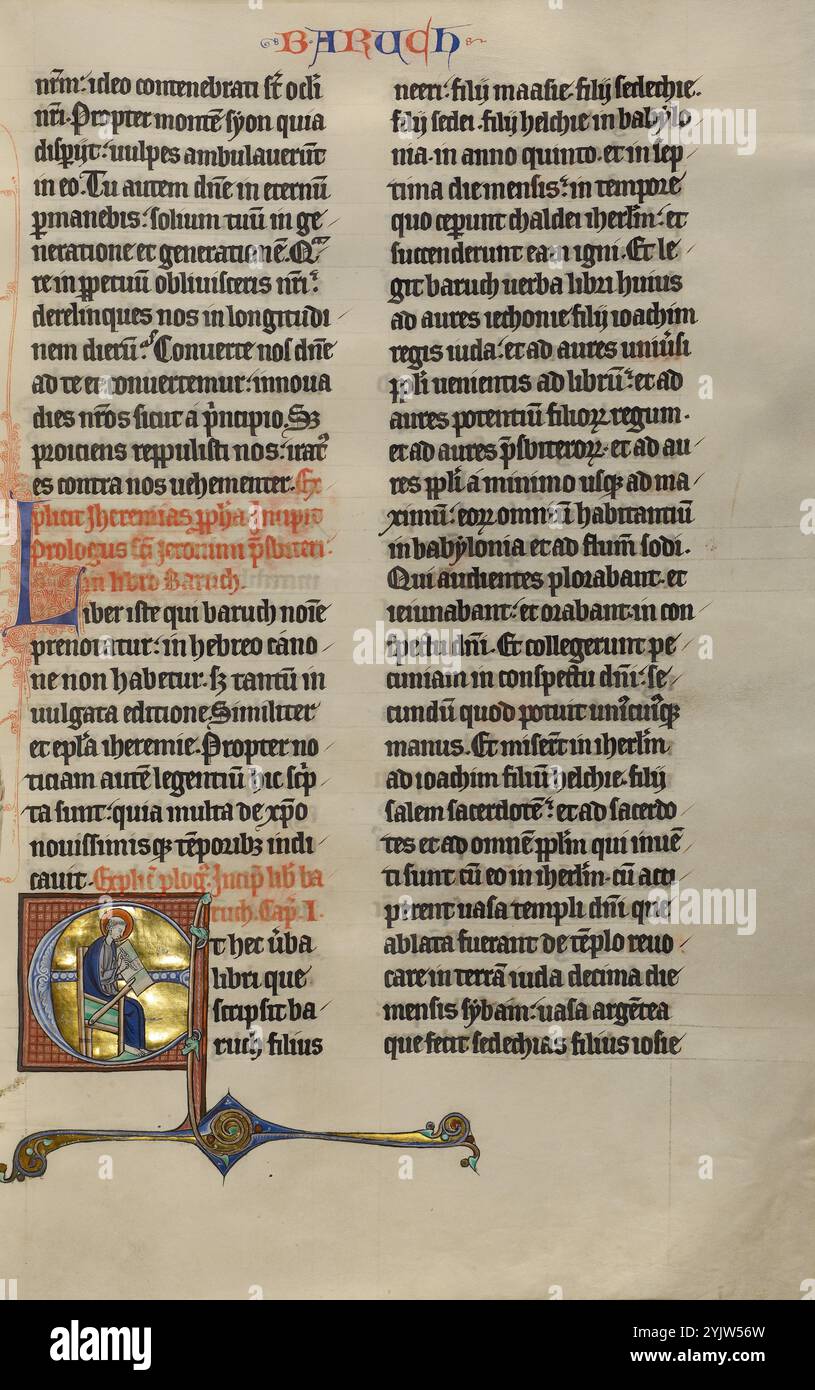 BARUCH
nr̄m: ideo contenebrati st̄ ocl̄i
nr̄i. Propter montē syon quia
disp̄ijt: uulpes ambulauerūt
in eo. Tu autem dn̄e in eternū
ꝑmanebis: solium tuū in ge
neratione et generationē. Qᵃ
re in ꝑpetuū obliuisceris nr̄i:
derelinques nos in longitudi
nem dierū: Conuerte nos dn̄e
ad te et conuertemur: innoua
dies nr̄os sicut a p̄ncipio. Sꝫ
proiciens reppulisti nos: irat᾽
es contra nos uehementer. Ex
plicit Jheremias ꝓph̄a. Incipit
prologus sc̄i Jeronimi p̄sbiteri
in libro Baruch.
Liber iste qui baruch noīe
prenotatur: in hebreo cano
ne non habetur. sꝫ tantū in
uulgata editione. Similiter
et epl̄a iheremie. Propter no
ticiam autē legentiū hic sc̄p
ta sunt: quia multa de xp̄o
nouissimisqꝫ tēporibꝫ indi
cauit. Explic̄ plog᾽. Incip̄ lib̄ ba
ruch. Cap̄. I.
Et hec ūba
libri que
scripsit ba
ruch filius
neeri: filij maasie. filij sedechie.
filij sedei. filij helchie in babylo
nia. in anno quinto. et in sep
tima die mensis: in tempore
quo ceperunt chaldei ih̄erl̄m: et
succenderunt eam igni. Et le
git baruch uerba libri huius
ad aures iechonie filij ioachim
regis iuda: et ad aures uniūsi
ppl̄i uenientis ad librū: et ad
aures potentiū filioꝝ regum.
et ad aures p̄sbiteroꝝ. et ad au
res ppl̄i a minimo usqꝫ ad ma
ximū: eoꝝ omniū habitantiū
in babylonia et ad flum̄ sodi.
Qui audientes plorabant. et
ieiunabant: et orabant in con
spectu dn̄i. Et collegerunt pe
cuniam in conspectu dn̄i: se
cundū quod potuit uni᾽cui᾽qꝫ
manus. Et miserūt in ih̄erl̄m
ad ioachim filiū helchie. filij
salem sacerdotē: et ad sacerdo
tes et ad omnē ppl̄m qui inuē
ti sunt cū eo in ih̄erl̄m. cū acci
perent uasa templi dn̄i que
ablata fuerant de tēplo reuo
care in terrā iuda decima die
mensis syban: uasa argētea
que fecit sedechias filius iosie
alamy
Image ID: 2YJW56W
www.alamy.com